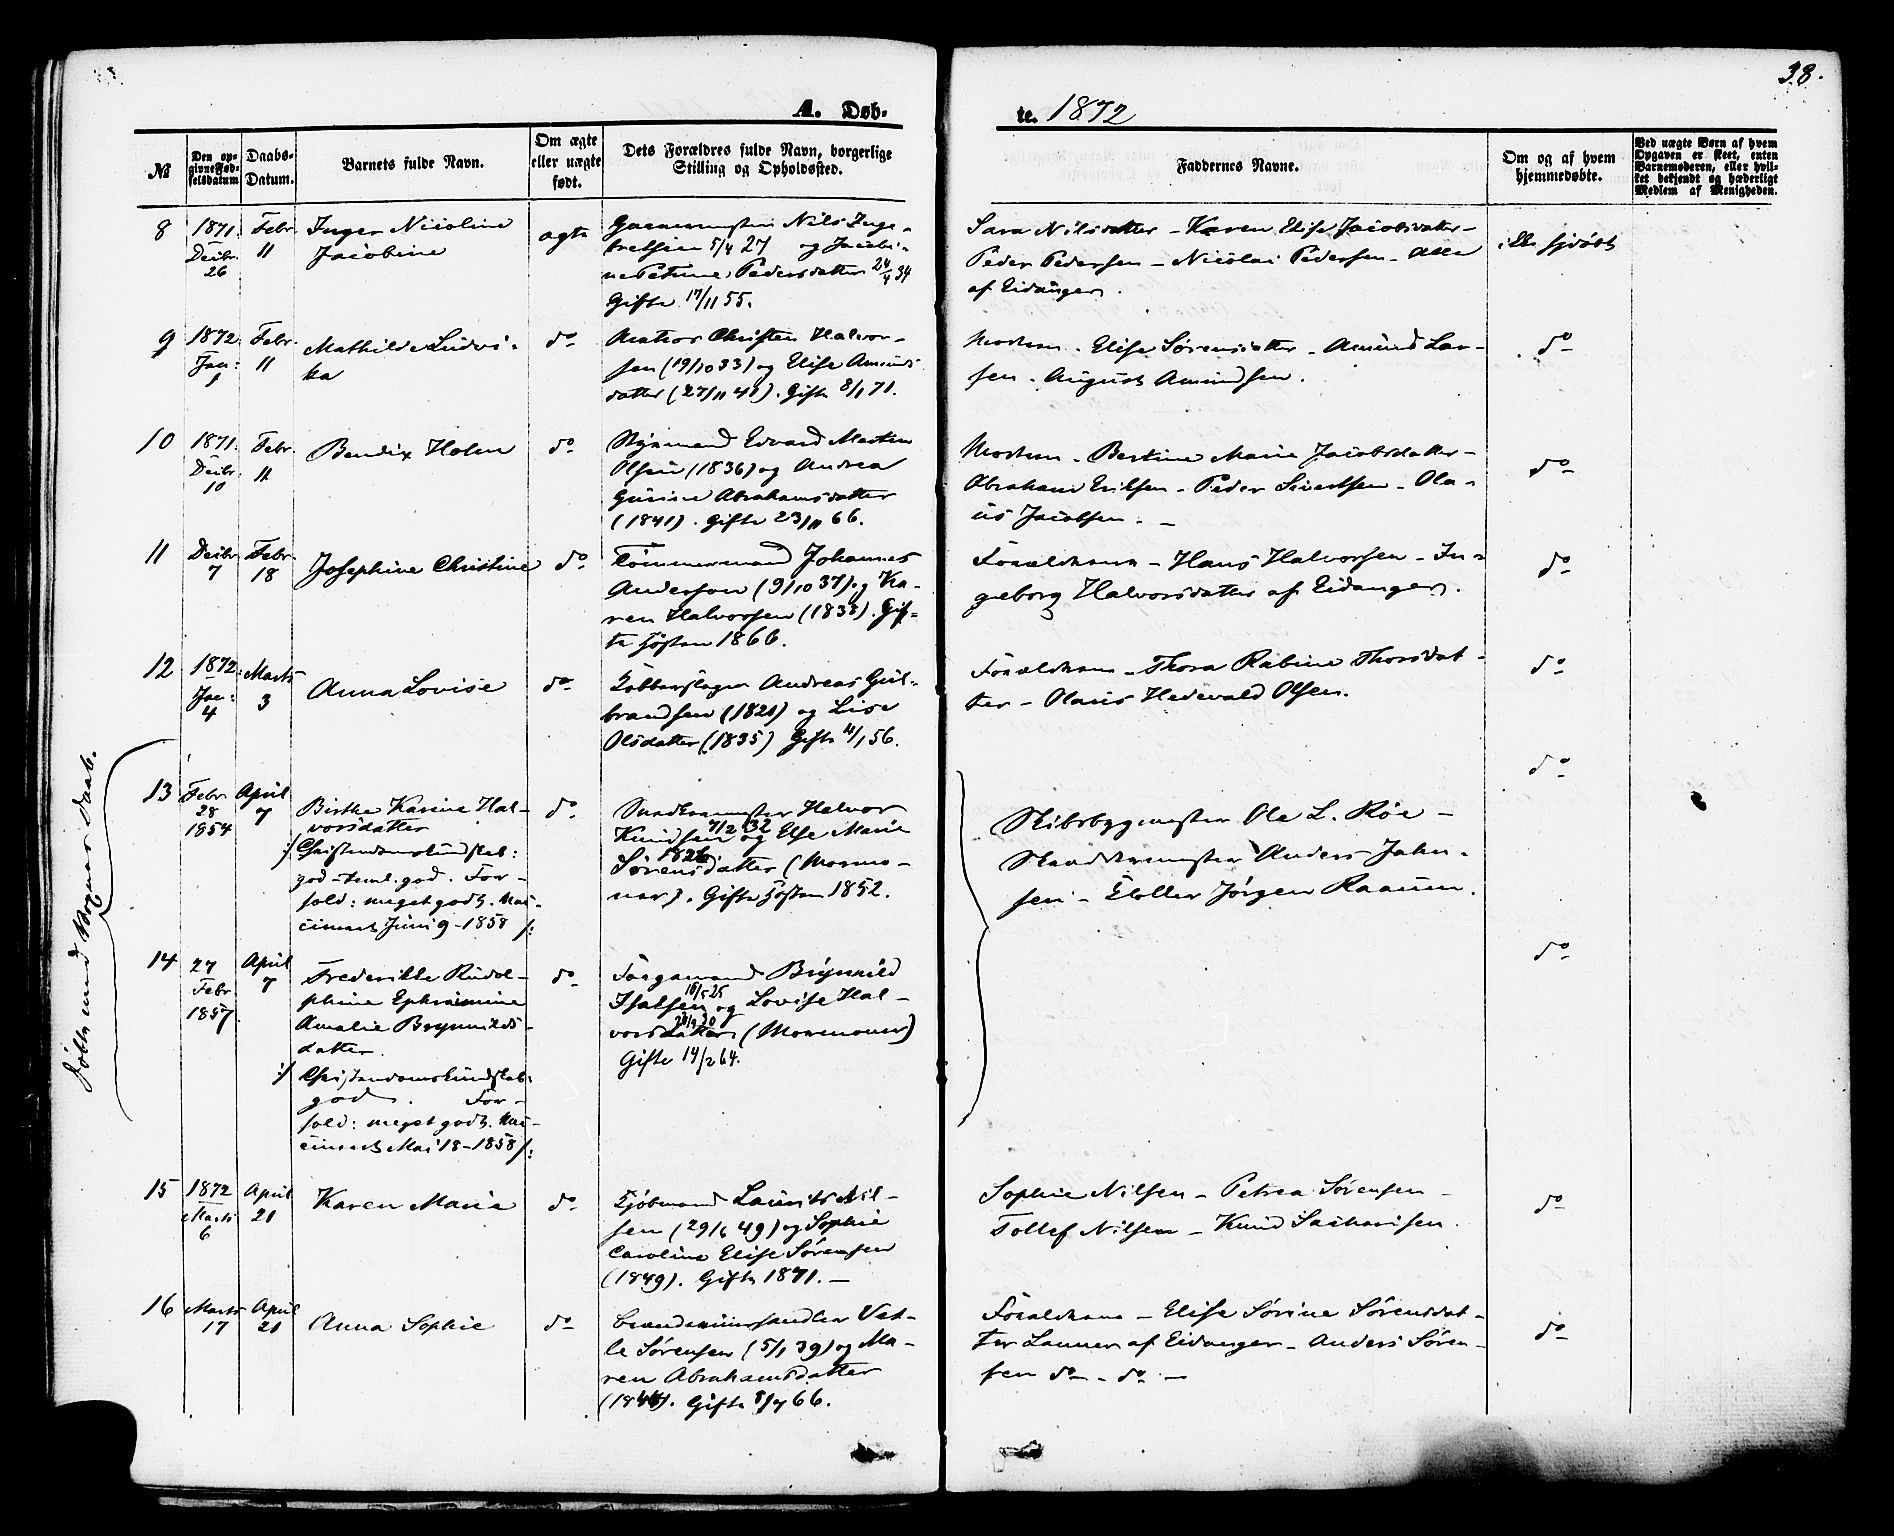 38.
A. Døb-
te. 1872
№
Den op-
givne Fød-
selsdatum
Daabs-
Datum.
Barnets fulde Navn.
Om ægte
eller uægte
født.
Dets Forældres fulde Navn, borgerlige
Stilling og Opholdssted.
Faddernes Navne.
Om og af hvem
hjemmedøbte.
Ved uægte Børn af hvem
Opgaven er skeet, enten
Barnemoderen, eller hvil-
ket bekjendt og hæderligt
Medlem af Menigheden.
8
1871.
Decbr.
26
Febr.
11
Inger Nicoline
Jacobine
ægte
Nils Inge-
bretsen 5/4 27 og Jacobi-
ne Petrine Pedersdatter 24/4 34
Gifte 17/11 55.
Sara Nilsdatter – Karen Elise Jacobsdatter –
Peder Pedersen – Nicolai Pedersen – Alle
af Eidanger.
ikke hjdøbt
9
1872.
Jan:
1
Febr.
11
Mathilde Ludvi-
ka
do
Matros Christen Halvor-
sen (19/10 33) og Elise Amunds-
datter (27/11 48). Gifte 8/1 71.
Moderen – Elise Sørensdatter – Amund Lar-
sen – August Amundsen.
do
10
1871.
Decbr.
10
Febr.
11
Bendix Holm
do
Styrmand Edvard Martin
Olsen (1836) og Andrea
Gurine Abrahamsdatter
(1841). Gifte 23/11 66.
Moderen – Bertine Marie Jacobsdatter –
Abraham Eriksen – Peder Sivertsen – Ola-
us Jacobsen. –
do
11
Decbr.
7
Febr.
18
Josephine Christine
do
Tømmermand Johannes
Anderson (9/10 37) og Ka-
ren Halvorsen (1838). Gif-
te Høsten 1866.
Forældrene – Hans Halvorsen – In-
geborg Halvorsdatter af Eidanger.
do
12
1872.
Jan:
4
Marts
3
Anna Lovise
do
Kobberslager Andreas Gul-
brandsen (1821) og Lise
Olsdatter (1835) Gifte 4/1 56.
Forældrene – Thora Rabine Thorsdat-
ter – Olaus Hedevald Olsen.
do
Døbte med Voxnes Daab.
13
Febr
28
1854
April
7
Birthe Karine Hal-
vorsdatter
:/ Christendomskundskab:
god – teml. god. For-
hold: meget godt. Vac-
cineret Juni 9 – 1858 /:
do
Halvor
Knudsen 7/2 32 og Else Marie
Sørensdatter 1826 (Mormo-
ner). Gifte Høsten 1852.
Skibsbygmester Ole L. Röe –
Anders Jahn-
sen – Jørgen Raanum.
do
14
27
Febr
1857
April
7
Frederikke Rudol-
phine Ephraimine
Amalie Brynnilds-
datter.
:/ Christendomskundskab:
god. For-
hold: meget godt. Vac-
cineret Mai 18 – 1858 /:
do
Brynnild
Isaksen 18/5 25 og Lovise Hal-
vorsdatter 20/9 30 (Mormoner)
Gifte 14/2 64.
do
15
1872
Marts
6
April
21
Karen Marie
do
Kjøbmand Laurits Nil-
sen (29/6 49) og Sophie
Caroline Elise Sørensen
(1849). Gifte 1871. –
Sophie Nilsen – Petrea Sørensen –
Tollef Nilsen – Knud Sachariasen.
do
16
Marts
17
April
21
Anna Sophie
do
Brændevinshandler Vet-
le Sørensen (5/1 39) og Ma-
ren Abrahamsdatter
(1844). Gifte 8/7 66.
Forældrene – Elise Sørine Sørensdat-
ter Lanner af Eidanger – Anders Søren-
sen do – do –
do